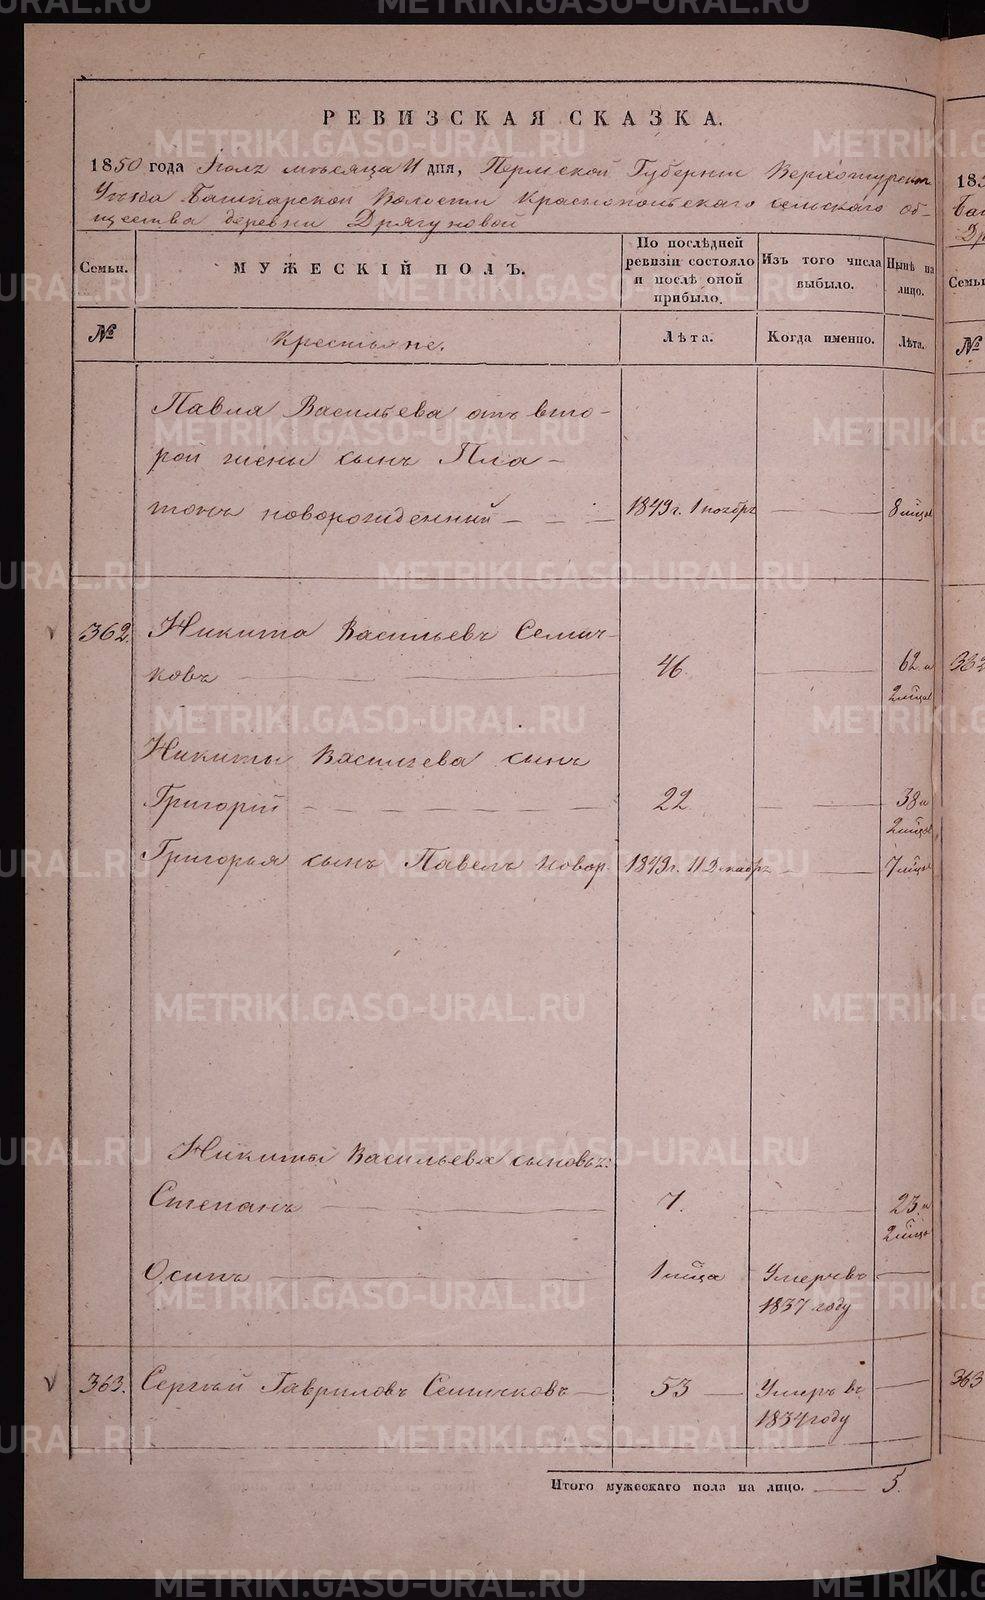 РЕВИЗСКАЯ СКАЗКА.
1850 года Іюля мѣсяца 11 дня, Пермской Губерніи Верхотурскаго
Уѣзда Башкарской Волости Краснопольскаго сельскаго об-
щества деревни Дрягуновой
Семьи.
МУЖЕСКІЙ ПОЛЪ.
По послѣдней
ревизіи состояло
и послѣ оной
прибыло.
Изъ того числа
выбыло.
Нынѣ на
лицо.
№
Крестьяне.
Лѣта.
Когда именно.
Лѣта.
Павла Васильева отъ вто-
рой жены сынъ Пла-
тонъ новорожденный 1849 г. 1 ноябр 8 мѣся
362. Никита Васильевъ Семич-
ковъ 46. 62. и
2 мѣся
Никиты Васильева сынъ
Григорій 22 38 и
2 мѣся
Григорья сынъ Павелъ новор. 1849 г. 11 Декабр 7 мѣся
Никиты Васильева сыновья:
Степанъ 7. 23. и
2 мѣся
Осипъ 1 мѣсяца Умеръ въ
1837 году
363. Сергѣй Гавриловъ Семичковъ 53 Умеръ въ
1834 году
Итого мужескаго пола на лицо. 5.
185
Семьи
№
362
363
METRIKI.GASO-URAL.RU